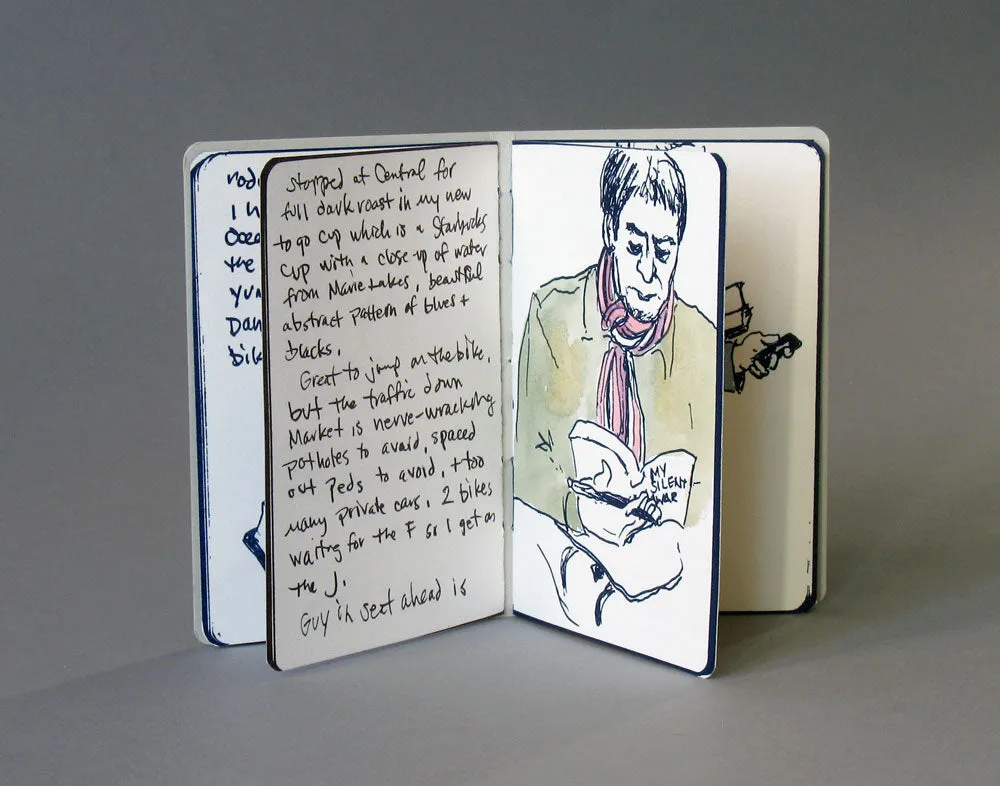 rod
I h
Ocea
the
yu
Dan
bik
stopped at Central for
full dark roast in my new
to go cup which is a Starbucks
cup with a close up of water
from Marie Lakes, beautiful
abstract pattern of blues +
blacks.
Great to jump on the bike,
but the traffic down
Market is nerve-wracking
potholes to avoid, spaced
out Peds to avoid, + too
many private cars. 2 bikes
waiting for the F so I get on
the J.
Guy in seat ahead is
MY
SILENT
WAR